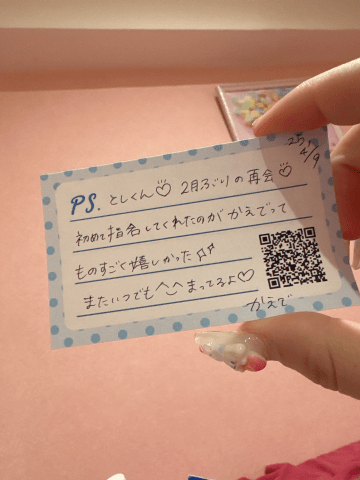 25.
4/9
PS. としくん♡ 2月ぶりの再会♡
初めて指名してくれたのがかえでって
ものすごく嬉しかった
またいつでも^‿^まってるよ♡
かえで